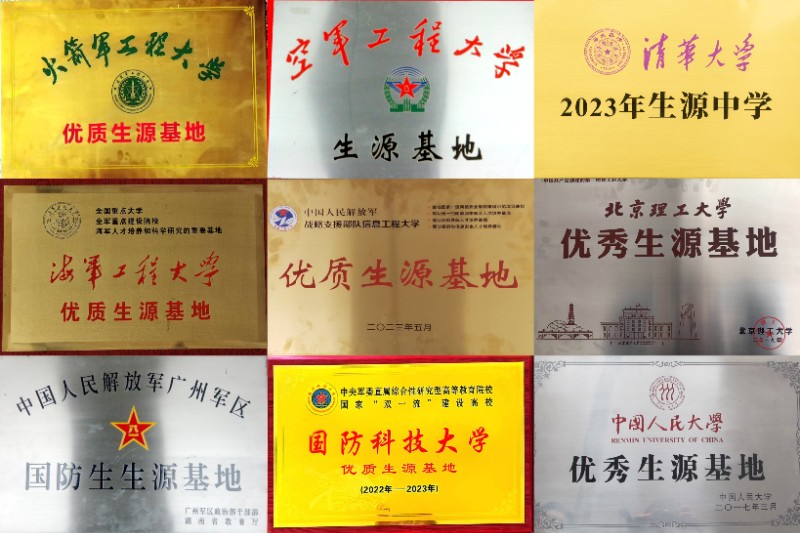 火箭军工程大学
优质生源基地
空军工程大学
生源基地
清华大学
2023年生源中学
全国重点大学
全军重点建设院校
海军人才培养和科学研究的重要基地
海军工程大学
优质生源基地
中国人民解放军
战略支援部队信息工程大学
优质生源基地
二〇二三年五月
北京理工大学
优秀生源基地
北京理工大学
中国人民解放军广州军区
国防生生源基地
广州军区政治部干部部
湖南省教育厅
中央军委直属综合性研究型高等教育院校
国家“双一流”建设高校
国防科技大学
优质生源基地
(2022年—2023年)
中国人民大学
RENMIN UNIVERSITY OF CHINA
优秀生源基地
中国人民大学
二〇一七年三月